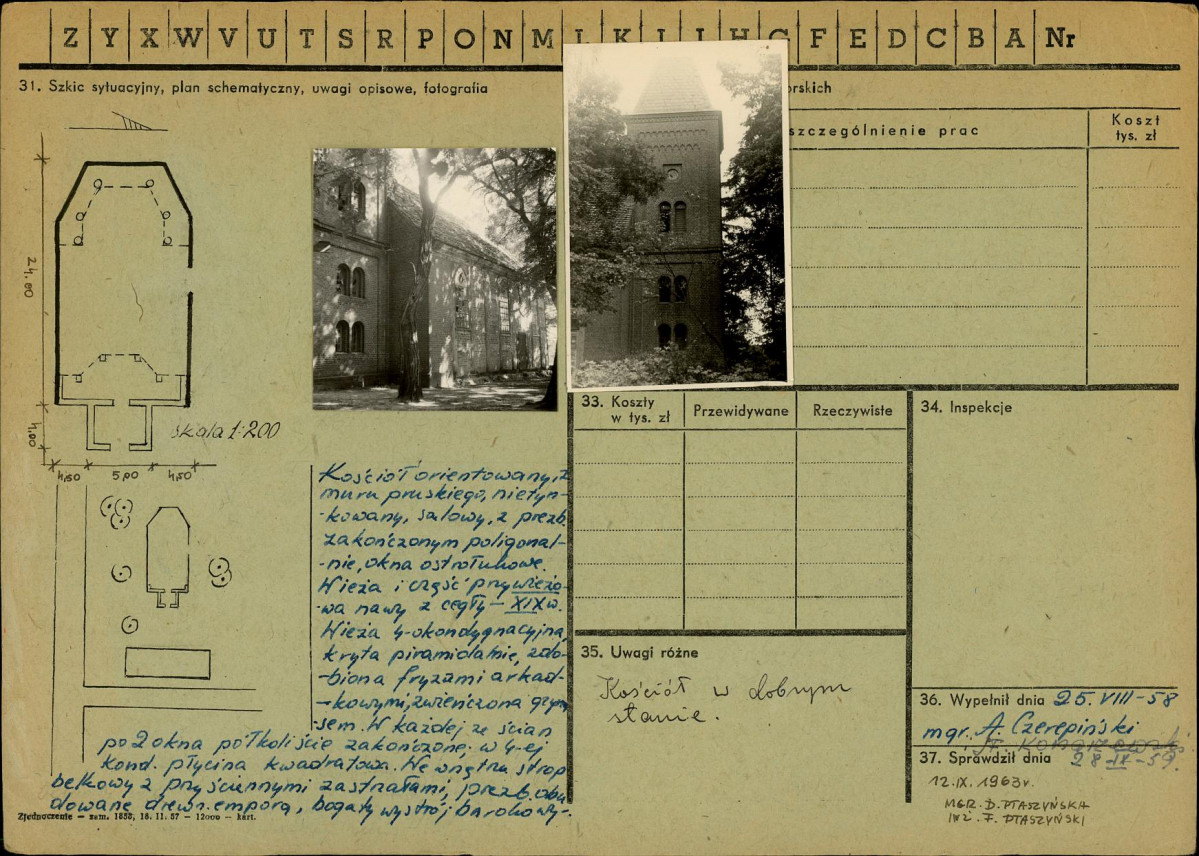 Z Y X W V U T S R P O N M L K J I H G F E D C B A Nr
31. Szkic sytuacyjny, plan schematyczny, uwagi opisowe, fotografia
24.00
4,00
4,50 5,00 4,50
skala 1:200
Kościół orientowany, z
muru pruskiego, nietyn-
-kowany, salowy, z prezb.
zakończonym poligonal-
-nie, okna ostrołukowe.
Wieża i część przywieżo-
-wa nawy z cegły – XIX w.
Wieża 4-okondygnacyjna,
kryta piramidalnie, zdo-
-biona fryzami arkad-
-kowymi, zwieńczona gzym
-sem. W każdej ze ścian
po 2 okna półkoliście zakończone; w 4-ej
kond. płycina kwadratowa. We wnętrzu strop
belkowy z przyściennymi zastrzałami, prezb. obu
dowane drewn. emporą, bogaty wystrój barokowy-.
Zjednoczenie – zam. 1858, 18. 11. 57 – 12000 – kart.
orskich
szczególnienie prac
Koszt
tys. zł
33. Koszty
w tys. zł
Przewidywane
Rzeczywiste
34. Inspekcje
35. Uwagi różne
Kościół w dobrym
stanie.
36. Wypełnił dnia 25. VIII-58
mgr. A. Czerepiński
37. Sprawdził dnia 28-IX-59.
12.IX. 1963r.
MGR. D. PTASZYŃSKA
INŻ. F. PTASZYŃSKI